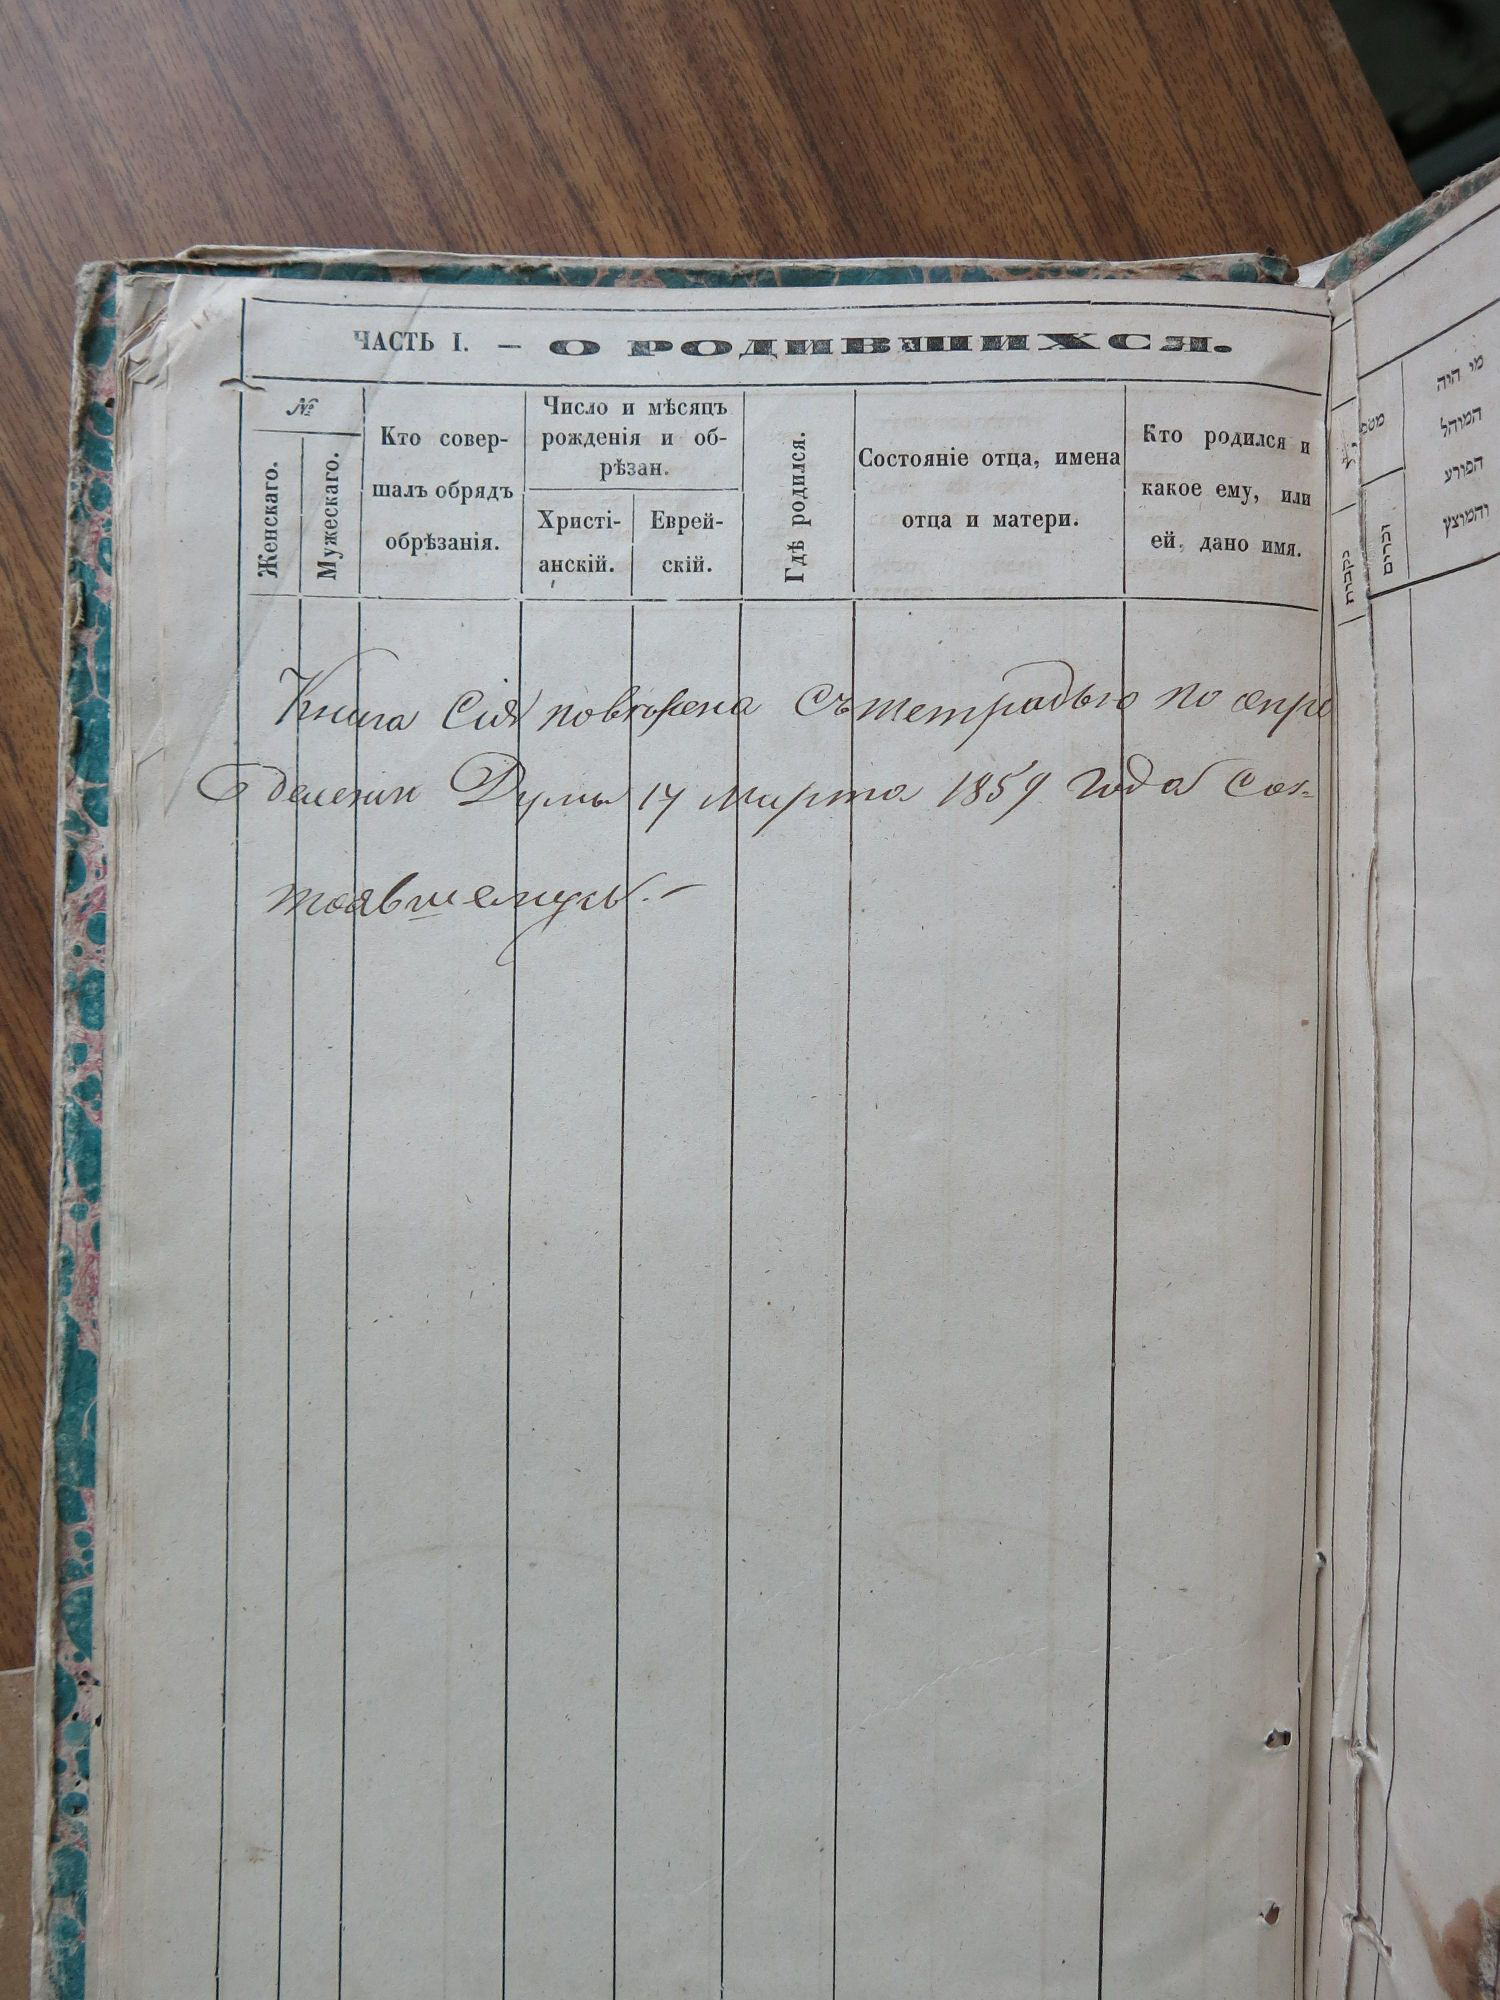 ЧАСТЬ I. — О РОДИВШИХСЯ.
№
Женскаго.
Мужескаго.
Кто совер-
шалъ обрядъ
обрѣзанія.
Число и мѣсяцъ
рожденія и об-
рѣзан.
Христі-
анскій.
Еврей-
скій.
Гдѣ родился.
Состояніе отца, имена
отца и матери.
Кто родился и
какое ему, или
ей, дано имя.
Книга Сія поверена Съ тетрадью по опре
деленію Думы 17 Марта 1859 года Сос=
тоявшемусь. —
מי היה
המוהל
הפורע
והמוצץ
זכרים
נקבות